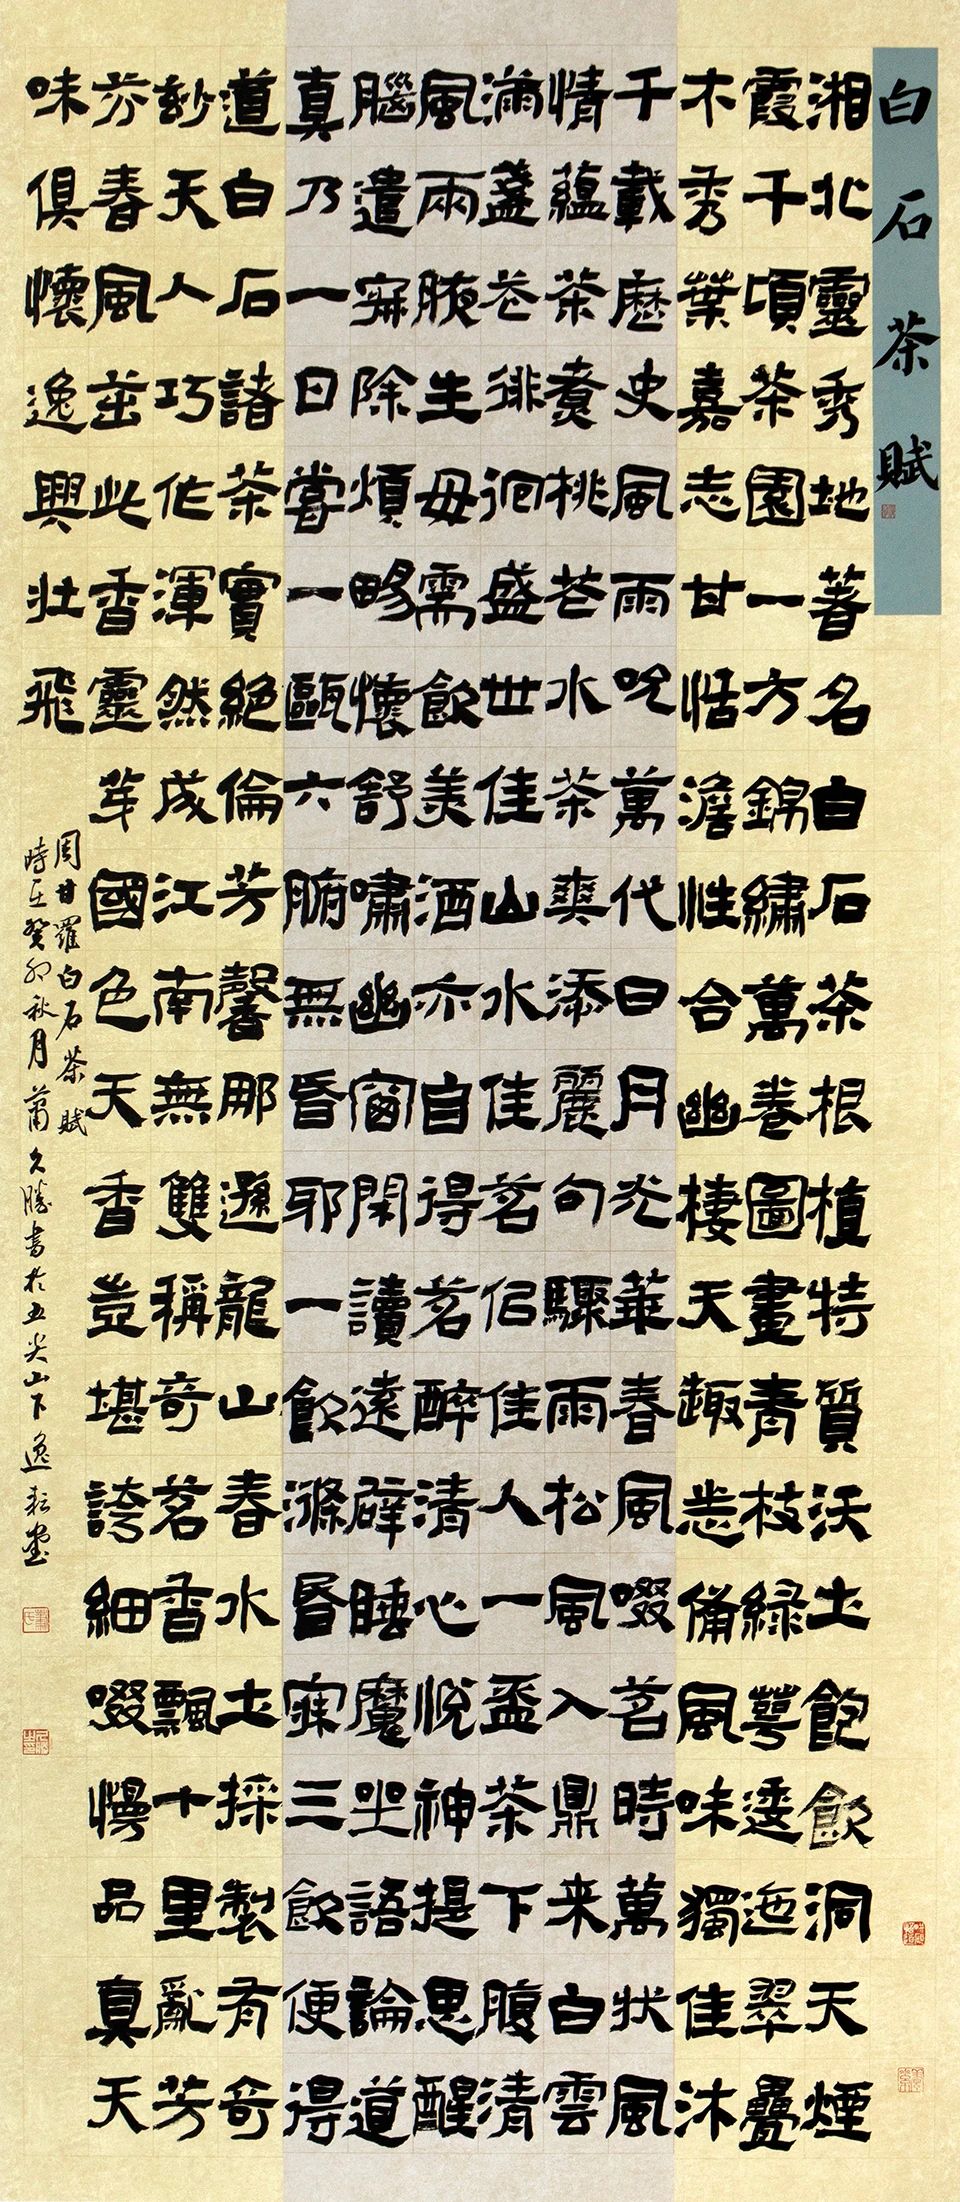 白石茶賦
湘北靈秀地著名白石茶根植特質沃土飽飲洞天煙
霞千頃茶園一方錦繡萬卷圖畫青枝綠萼逶迤翠疊
木秀葉嘉志甘恬澹性合幽棲天趣悉備風味獨佳沐
千載歷史風雨吮萬代日月光華春風啜茗時萬狀風
情蘊茶煮桃花水茶爽添麗句驟雨松風入鼎来白雲
滿盞花徘徊盛世佳山水佳茗侣佳人一盃茶下腹清
風兩腋生毋需飲美酒亦自得茗醉清心悅神提思醒
腦遣寐除煩暢懷舒嘯幽窗閑讀遠辟睡魔坐語論道
真乃一日嘗一甌六腑無昏耶一飲滌昏寐三飲便得
道白石諸茶實絕倫芳馨那遜龍山春水土採製有奇
妙天人巧作渾然成江南無雙稱奇茗香飄十里亂芳
芬春風茁此香靈芽國色天香豈堪誇細啜慢品真天
味俱懷逸興壯飛
周甘羅白石茶賦
時在癸卯秋月蕭久勝書於五尖山下逸耘堂